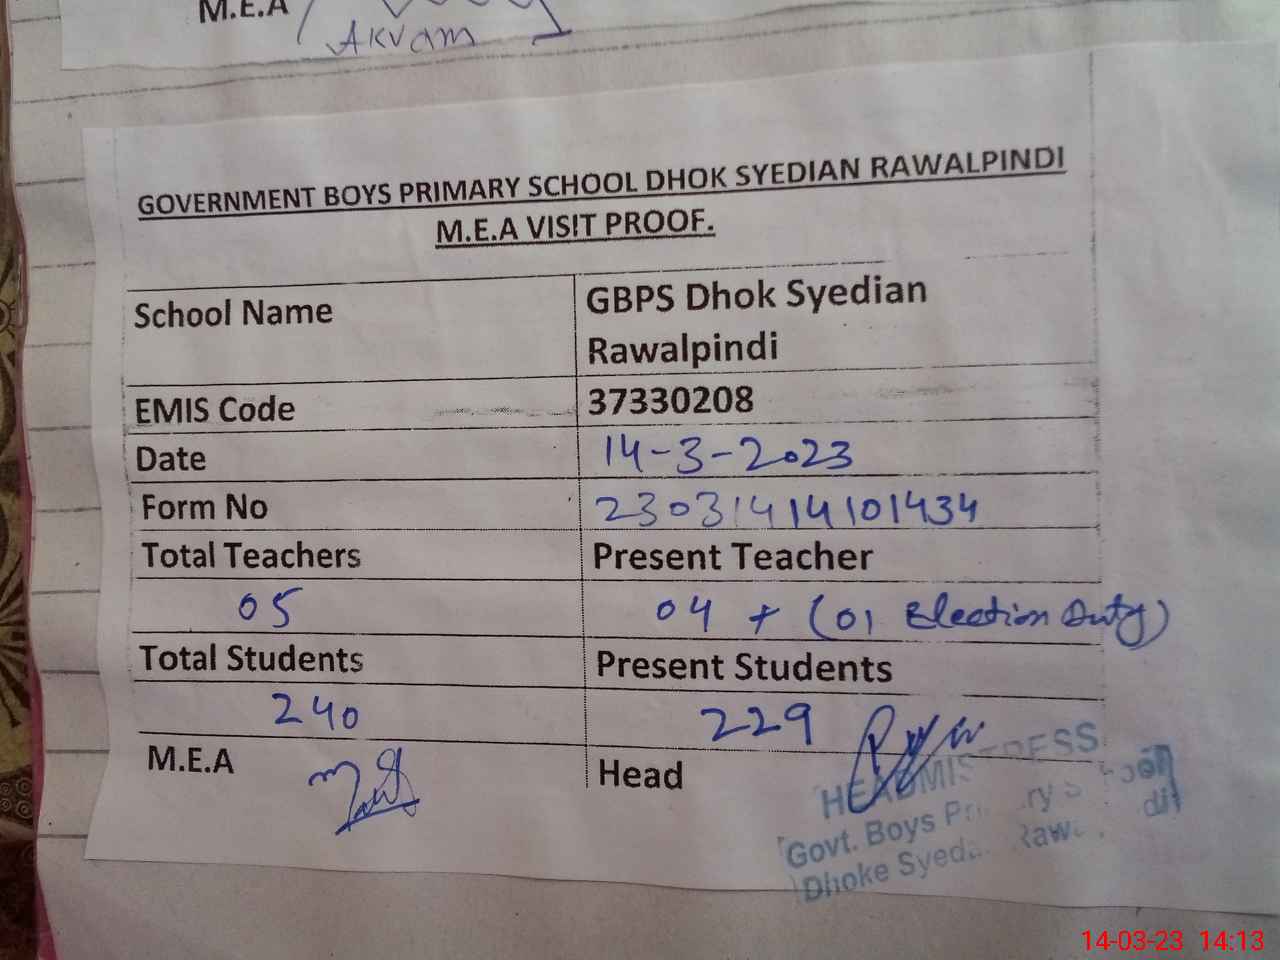 M.E.A
Akram
GOVERNMENT BOYS PRIMARY SCHOOL DHOK SYEDIAN RAWALPINDI
M.E.A VISIT PROOF.
School Name GBPS Dhok Syedian
Rawalpindi
EMIS Code 37330208
Date 14-3-2023
Form No 23031414101434
Total Teachers Present Teacher
05 04 + (01 Election Duty)
Total Students Present Students
240 229
M.E.A Head
HEADMISTRESS
Govt. Boys Primary School
Dhoke Syed Raw di
14-03-23 14:13